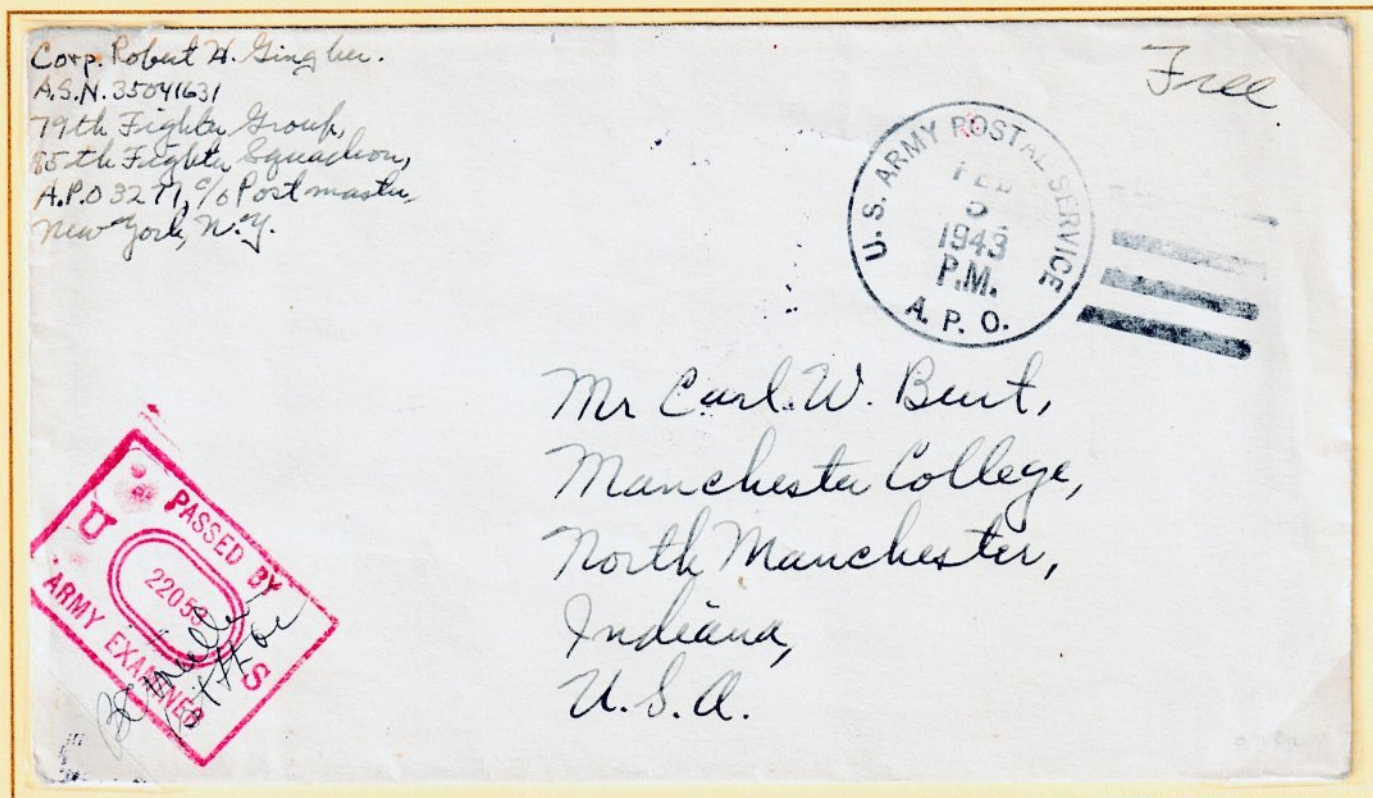 Corp. Robert H. Gingher.
A.S.N. 35041631
79th Fighter Group,
85th Fighter Squadron,
A.P.O 3277, c/o Postmaster,
New York, N.Y.
Free
U.S. ARMY POSTAL SERVICE
FEB
5
1943
P.M.
A.P.O.
Mr Carl. W. Burt,
Manchester College,
North Manchester,
Indiana,
U.S.A.
PASSED BY
U S
22059
ARMY EXAMINER
1st Lt AC